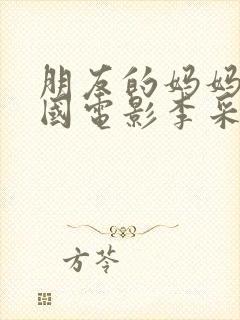 朋友的妈妈
國電影李采
方苓